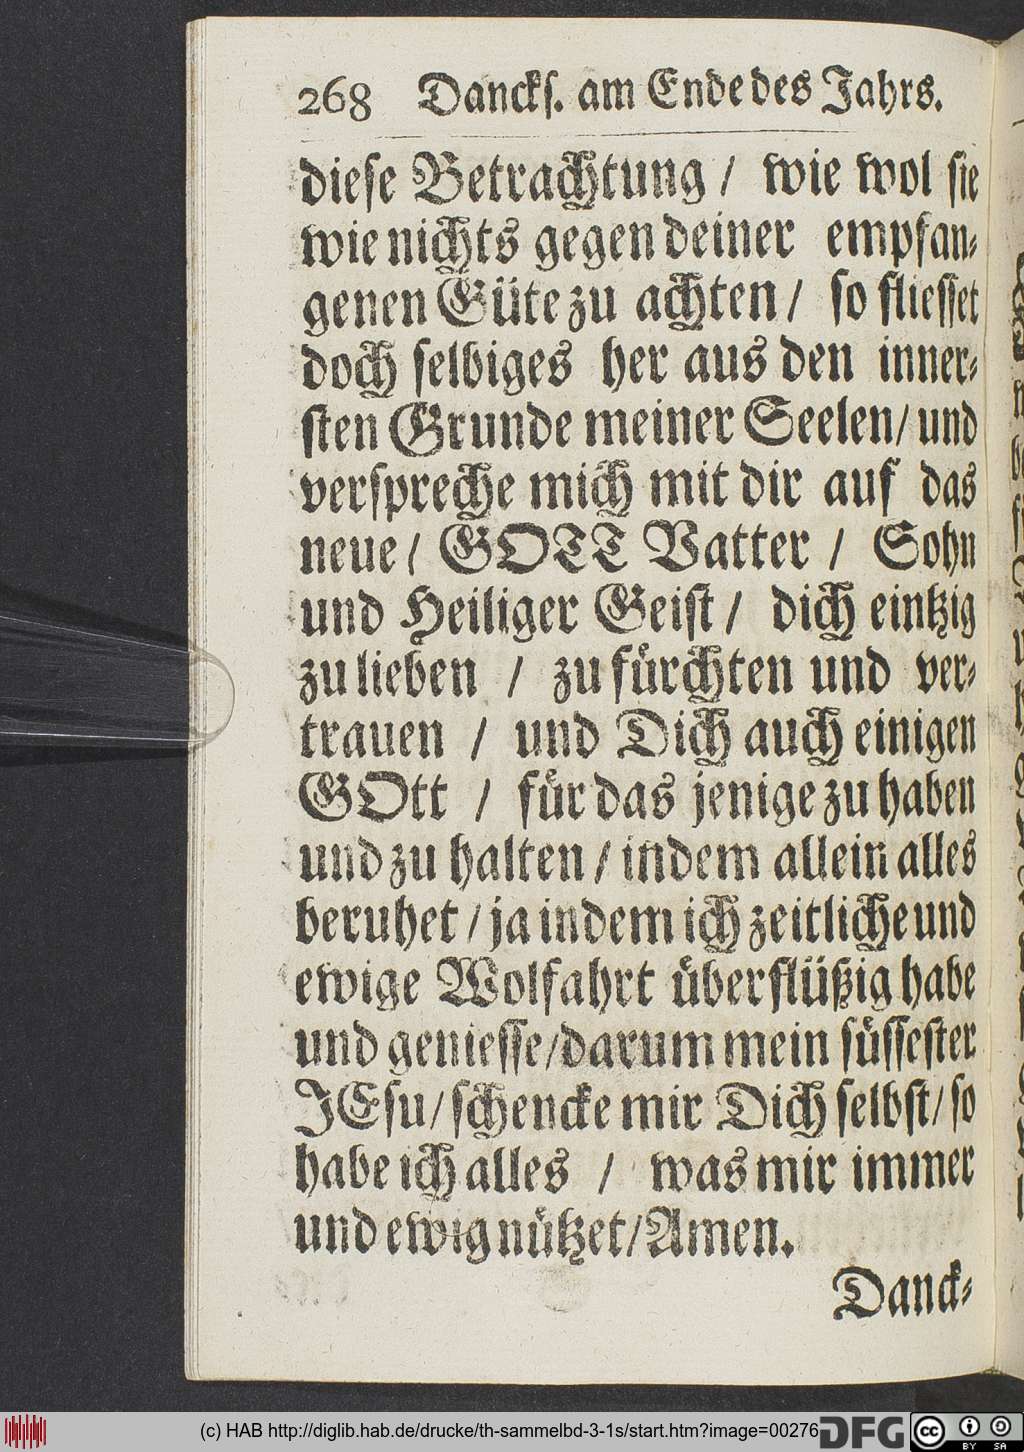 268 Dancks. am Ende des Jahrs.
diese Betrachtung / wie wol sie
wie nichts gegen deiner empfan-
genen Güte zu achten / so fliesset
doch selbiges her aus den inner-
sten Grunde meiner Seelen/ und
verspreche mich mit dir auf das
neue / GOTT Vatter / Sohn
und Heiliger Geist / dich eintzig
zu lieben / zu fürchten und ver-
trauen / und Dich auch einigen
GOtt / für das jenige zu haben
und zu halten / indem allein alles
beruhet / ja indem ich zeitliche und
ewige Wolfahrt überflüßig habe
und geniesse/darum mein süssester
JEsu/ schencke mir Dich selbst/ so
habe ich alles / was mir immer
und ewig nützet/Amen.
Danck-
(c) HAB http://diglib.hab.de/drucke/th-sammelbd-3-1s/start.htm?image=00276
DFG
cc BY SA